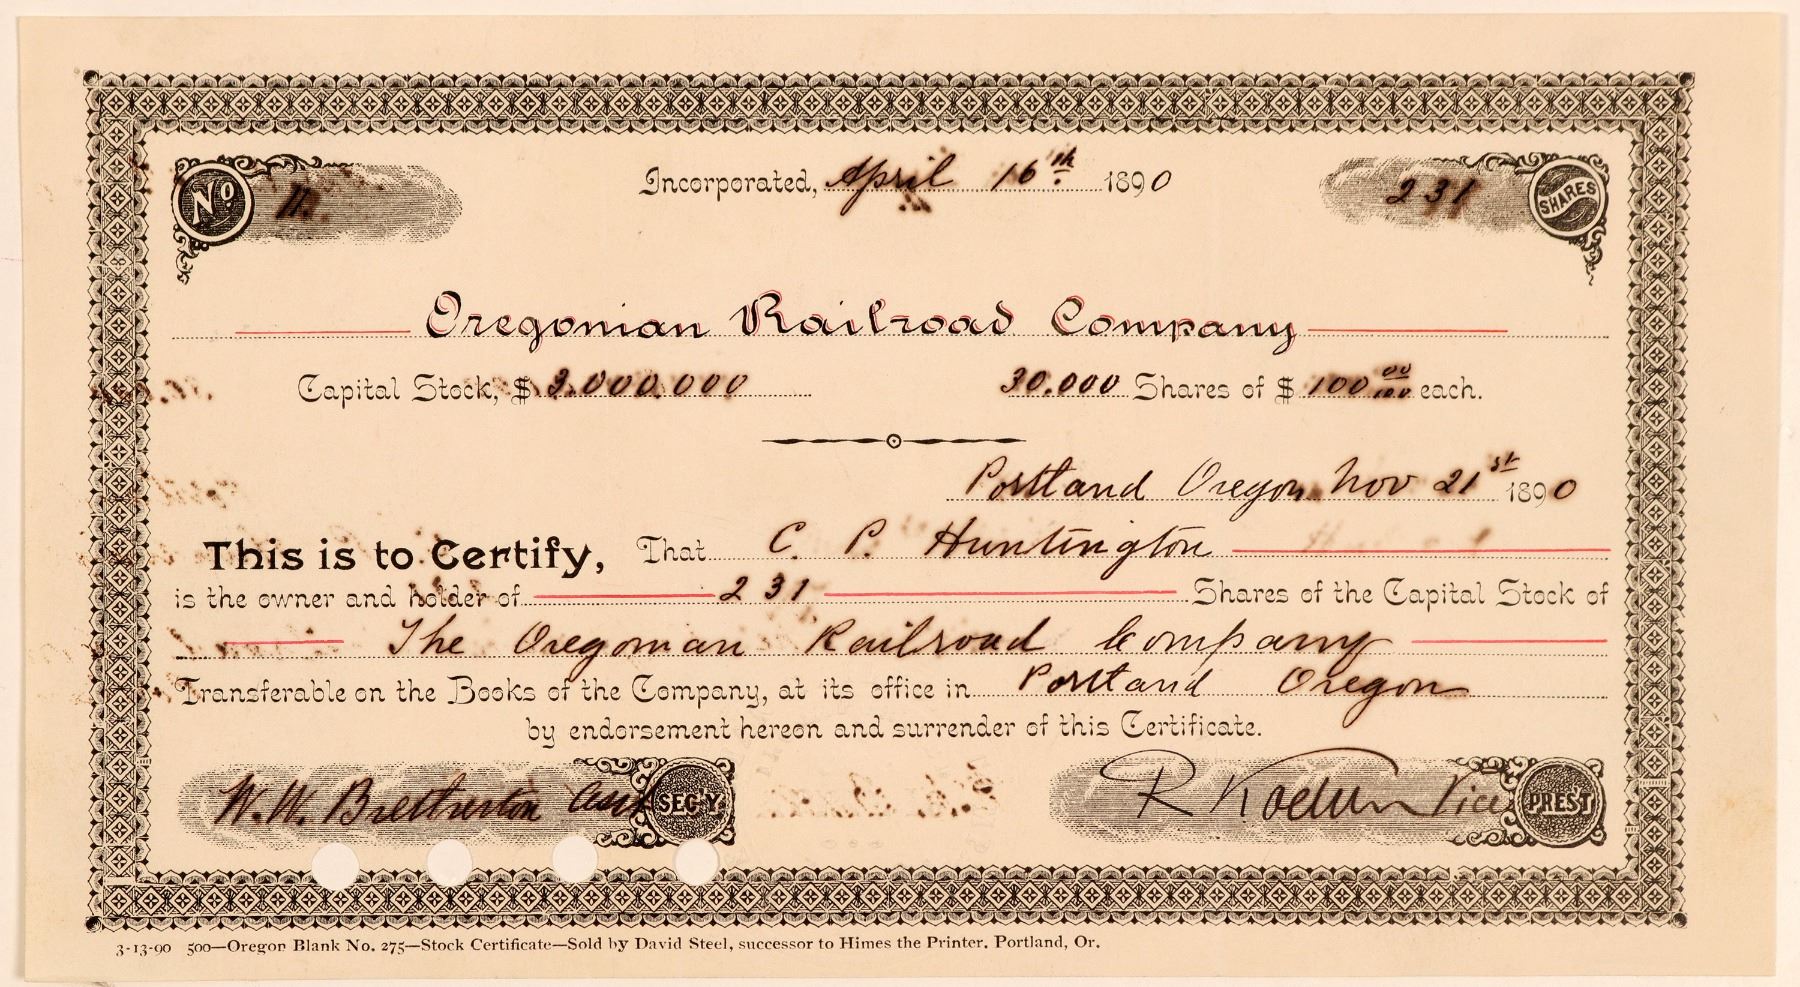 No. 11. Incorporated, April 16th 1890 231 SHARES
Oregonian Railroad Company
Capital Stock, $ 3.000.000 30.000 Shares of $ 100 00/100 each.
Portland Oregon Nov 21st 1890
This is to Certify, That C. P. Huntington
is the owner and holder of 231 Shares of the Capital Stock of
The Oregonian Railroad Company
Transferable on the Books of the Company, at its office in Portland Oregon
by endorsement hereon and surrender of this Certificate.
W. W. Bretherton Asst SEC'Y R Koehler Vice PREST
3-13-90 500—Oregon Blank No. 275—Stock Certificate—Sold by David Steel, successor to Himes the Printer. Portland, Or.